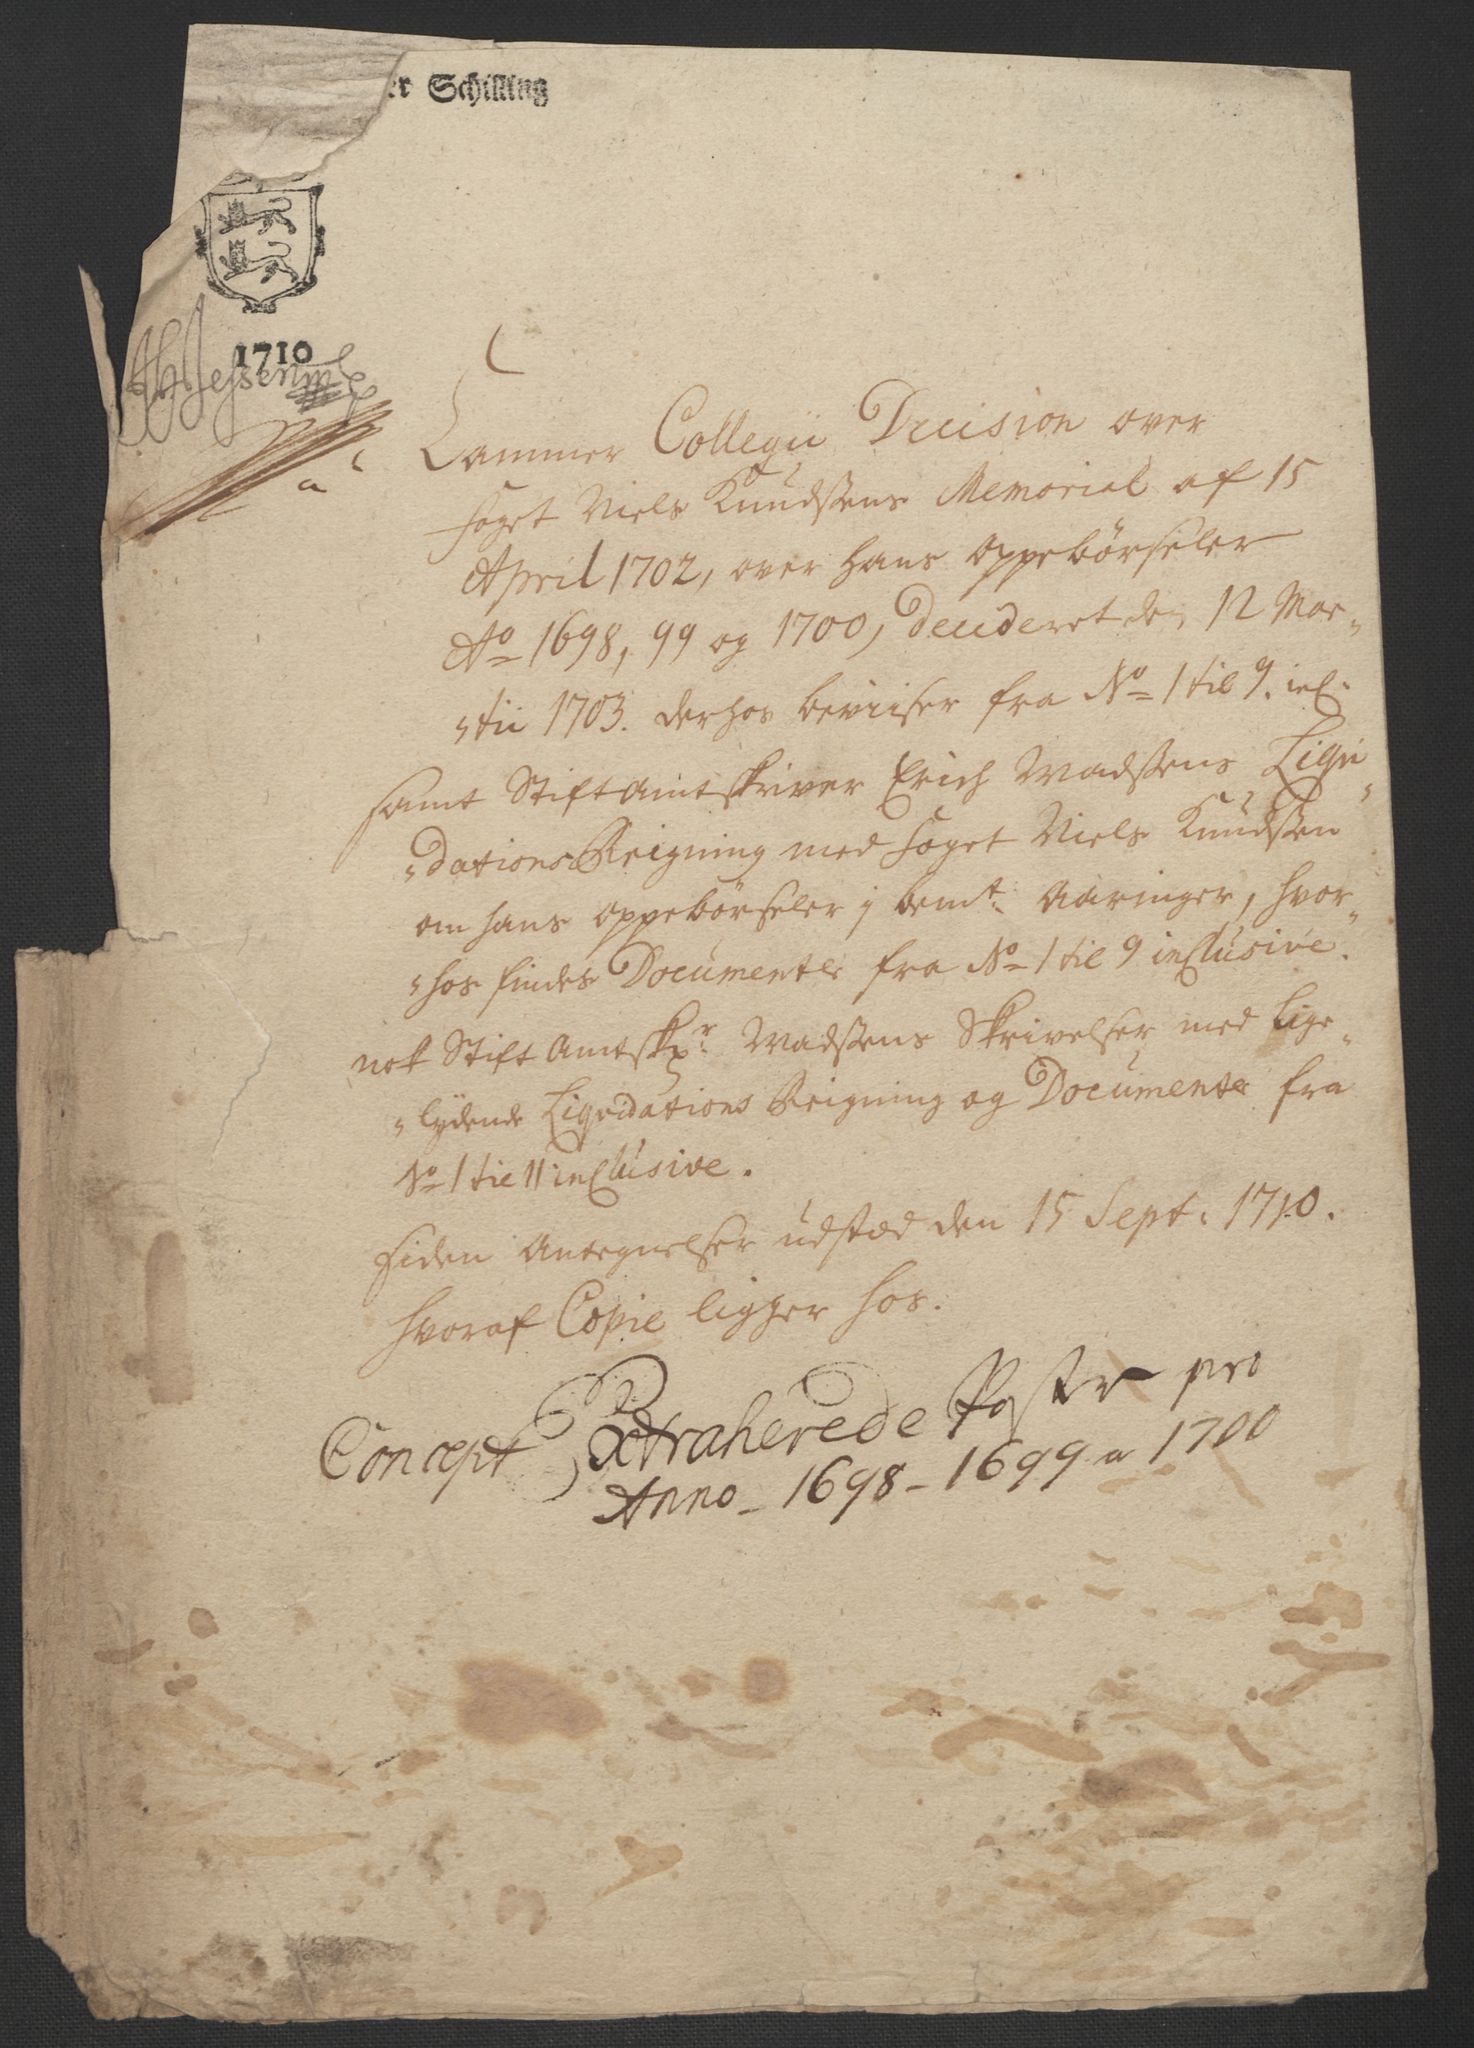 er Schilling
1710
Jessen
Cammer Collegii Decision over
foget Niels Knudssens Memorial af 15
April 1702, over hans oppebörseler
Ao 1698, 99 og 1700, decideret den 12 Mar-
-tii 1703. derhos beviiser fra No 1 til 9. incl.
samt Stiftamtskriver Erich Madssens Liqvi-
-dations Reigning med foget Niels Knudssen
om hans oppebörseler i bemte Aaringer, hvor-
-hos findes Documenter fra No 1 til 9 inclusive.
nok Stift Amtskr Madssens Skrivelser med lige-
-lydende Liqvidations Reigning og Documenter fra
No 1 til 11 inclusive.
siden Antegnelser udstæd den 15 Sept: 1710.
hvoraf Copie ligger hos.
Concept Extraherede Poster pro
Anno - 1698 - 1699 a 1700